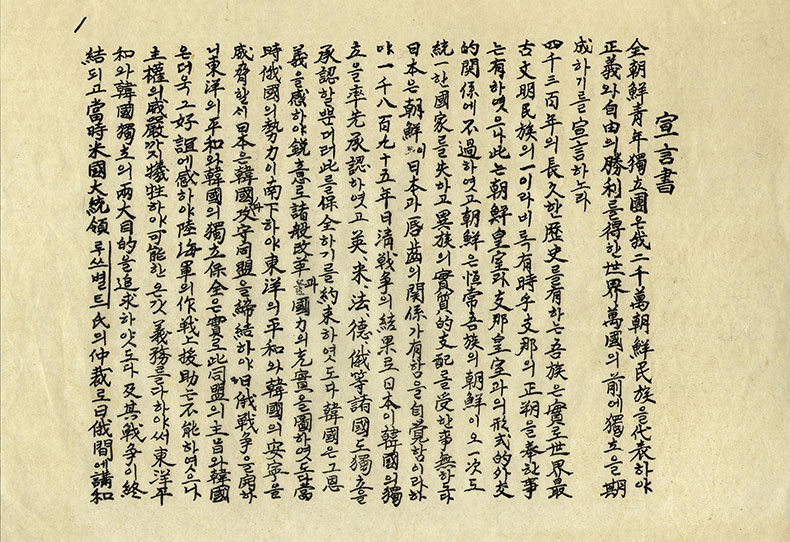 1
宣言書
全朝鮮青年獨立團은我二千萬朝鮮民族을代表하야
正義와自由의勝利를得한世界萬國의前에獨立을期
成하기를宣言하노라
四千三百年의長久한歷史를有하는吾族은實로世界最
古文明民族의一이라비록有時乎支那의正朔을奉한事
는有하엿으나此는朝鮮皇室과支那皇室과의形式的外交
的關係에不過하엿고朝鮮은恒常吾族의朝鮮이오一次도
統一한國家를失하고異族의實質的支配를受한事無하도다
日本은朝鮮이日本과唇齒의關係가有함을自覺함이라하
야一千八百九十五年日淸戰爭의結果로日本이韓國의獨
立을率先承認하엿고英、米、法、德、俄等諸國도獨立을
承認할뿐더러此를保全하기를約束하엿도다韓國은그恩
義를感하야銳意로諸般改革과國力의充實을圖하엿도다當
時俄國의勢力이南下하야東洋의平和와韓國의安寧을
威脅할새日本은韓國과攻守同盟을締結하야日俄戰爭을開하
니東洋의平和와韓國의獨立保全은實로此同盟의主旨라韓國
은더욱그好誼에感하야陸海軍의作戰上援助는不能하엿으나
主權의威嚴까지犧牲하야可能한온갓義務를다하야써東洋平
和와韓國獨立의兩大目的을追求하얏도다及其戰爭이終
結되고當時米國大統領루쓰벨트氏의仲裁로日俄間에講和